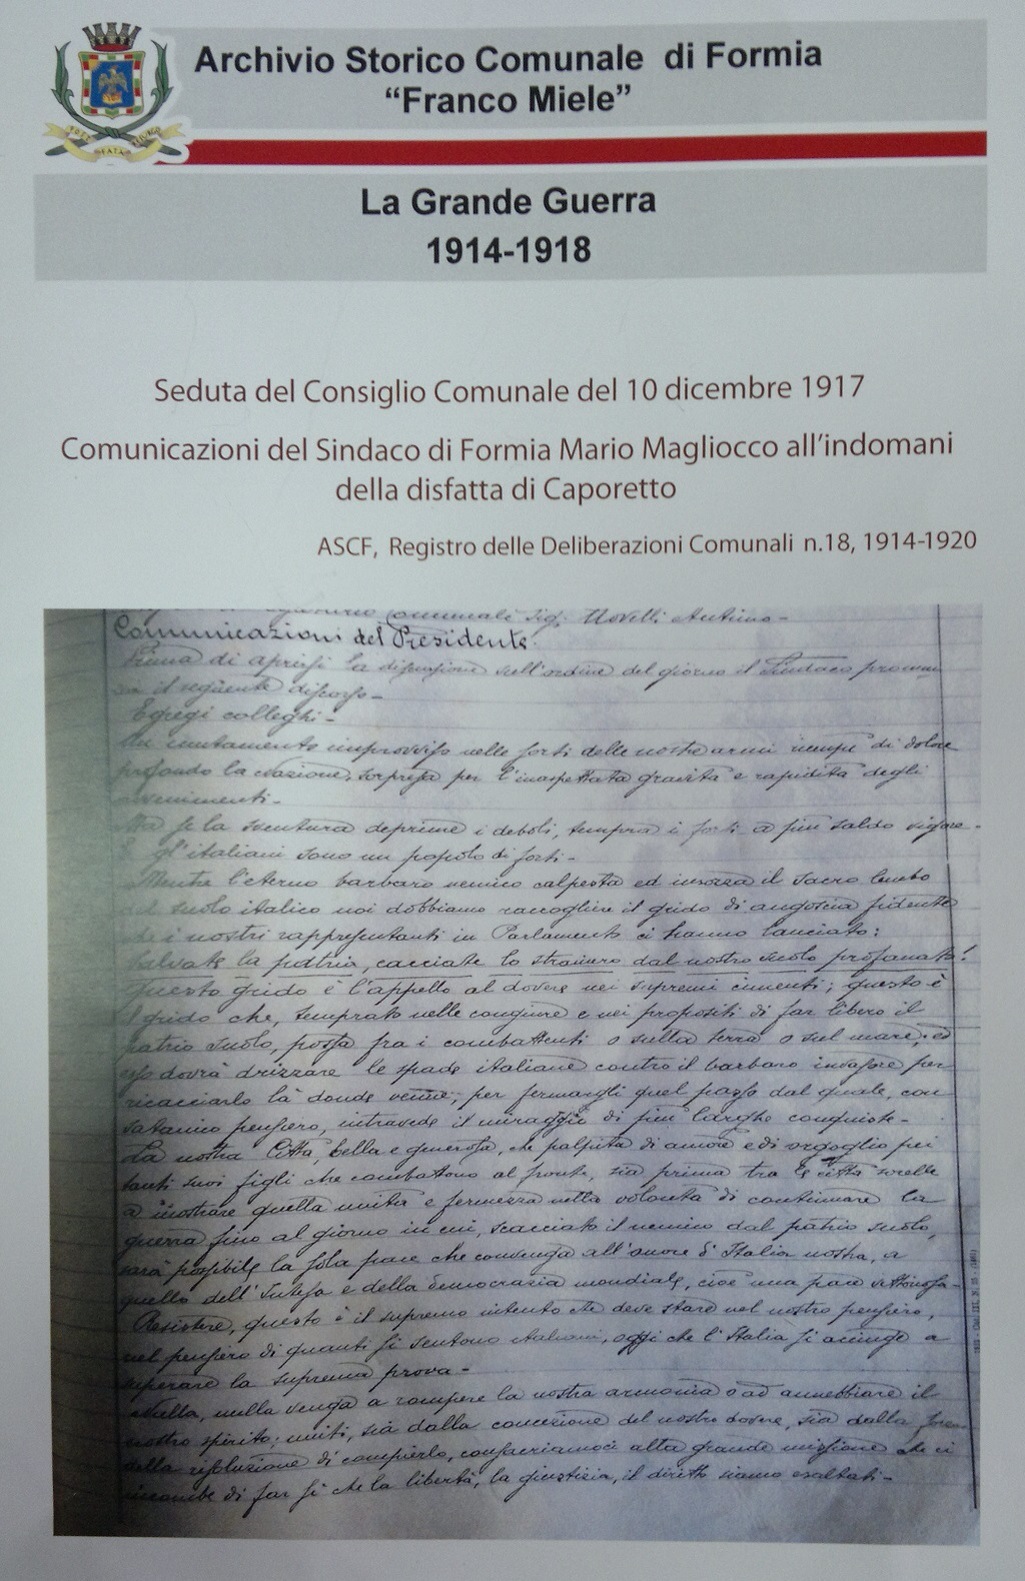 Archivio Storico Comunale di Formia
"Franco Miele"
La Grande Guerra
1914-1918
Seduta del Consiglio Comunale del 10 dicembre 1917
Comunicazioni del Sindaco di Formia Mario Magliocco all'indomani
della disfatta di Caporetto
ASCF, Registro delle Deliberazioni Comunali n.18, 1914-1920
Comunale Sig. Novelli
Comunicazioni del Presidente.
Prima di aprirsi la discussione sull'ordine del giorno il Sindaco pronun
il seguente discorso-
Egregi colleghi-
Un mutamento improvviso nelle sorti delle nostre armi riempì di dolore
profondo la nazione, sorpresa per l'inaspettata gravità e rapidità degli
avvenimenti-
Ma se la sventura deprime i deboli, tempra i forti a più saldo vigore-
E gl'italiani sono un popolo di forti-
Mentre l'eterno barbaro nemico calpesta ed insozza il sacro lembo
del suolo italico noi dobbiamo raccogliere il grido di angoscia fidente
che i nostri rappresentanti in Parlamento ci hanno lanciato:
Salvate la patria, cacciate lo straniero dal nostro suolo profanato!
Questo grido è l'appello al dovere nei supremi cimenti; questo è
il grido che, temprato nelle congiure e nei propositi di far libero il
patrio suolo, passa fra i combattenti o sulla terra o sul mare, ed
esso dovrà drizzare le spade italiane contro il barbaro invasore per
ricacciarlo là donde venne; per fermargli quel passo dal quale, con
satanico pensiero, intravede il miraggio di più larghe conquiste-
La nostra Città, bella e generosa, che palpita di amore e di orgoglio pei
tanti suoi figli che combattono al fronte, sia prima tra le città sorelle
a mostrare quella unità e fermezza nella volontà di continuare la
guerra fino al giorno in cui, scacciato il nemico dal patrio suolo,
sarà possibile la sola pace che convenga all'onore d'Italia nostra, a
quello dell'Intesa e della democrazia mondiale, cioè una pace vittoriosa-
Resistere, questo è il supremo intento che deve stare nel nostro pensiero,
nel pensiero di quanti si sentono italiani, oggi che l'Italia si accinge a
superare la suprema prova-
Nulla, nulla venga a rompere la nostra armonia o ad annebbiare il
nostro spirito; uniti, sia dalla concezione del nostro dovere, sia dalla
della risoluzione di compierlo, consacriamoci alla grande missione che ci
incombe di far sì che la libertà, la giustizia, il diritto siano esaltati-